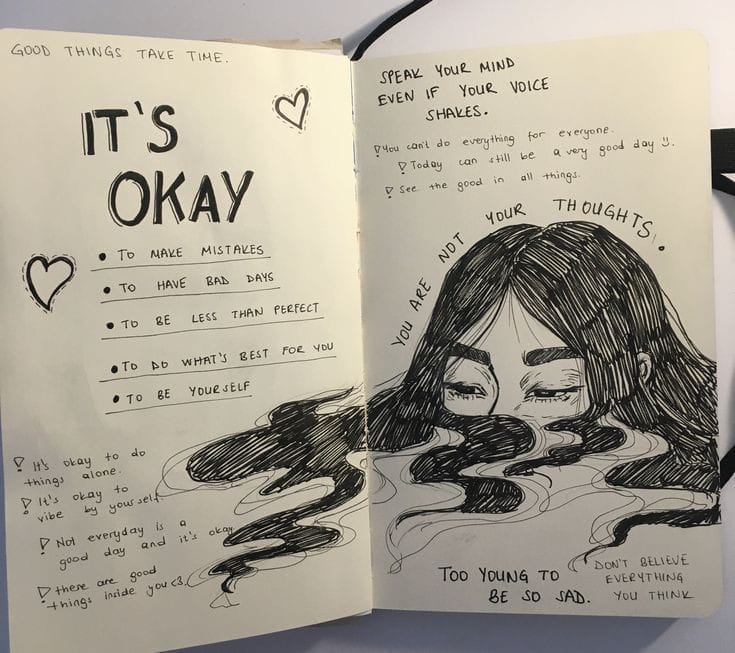 GOOD THINGS TAKE TIME.
IT'S
OKAY
• TO MAKE MISTAKES
• TO HAVE BAD DAYS
• TO BE LESS THAN PERFECT
• TO DO WHAT'S BEST FOR YOU
• TO BE YOURSELF
It's okay to do
things alone.
It's okay to
vibe by yourself.
Not everyday is a
good day and it's okay.
there are good
things inside you <3.
SPEAK YOUR MIND
EVEN IF YOUR VOICE
SHAKES.
You can't do everything for everyone.
Today can still be a very good day :).
See the good in all things.
YOU ARE NOT YOUR THOUGHTS.
TOO YOUNG TO
BE SO SAD.
DON'T BELIEVE
EVERYTHING
YOU THINK